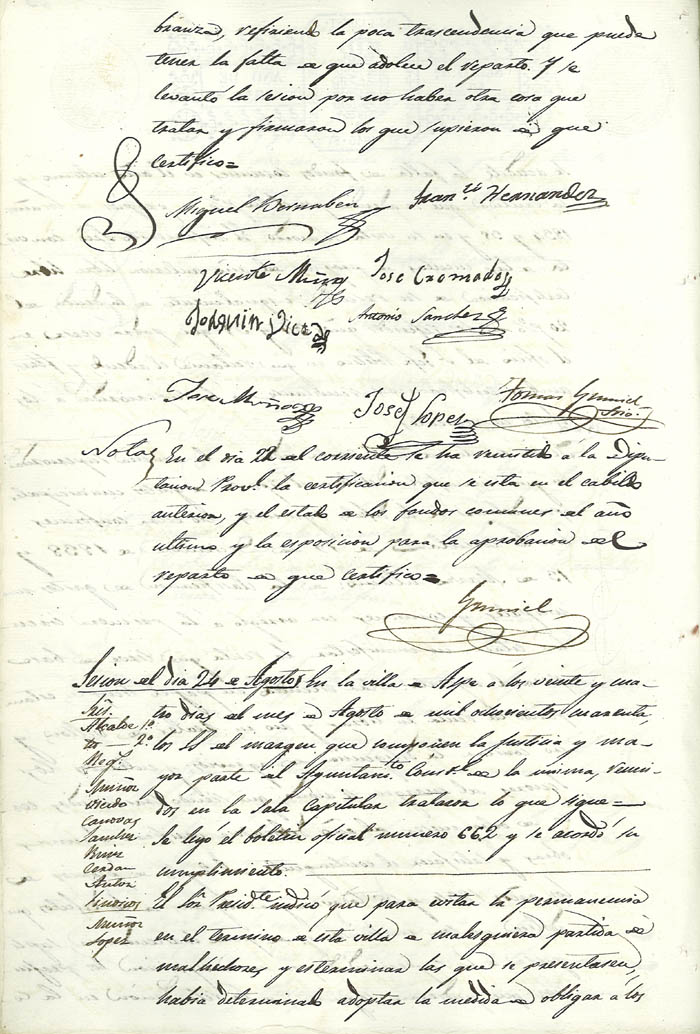 branza, refiriendo la poca trascendencia que puede
tener la falta de que adolece el reparto. Y se
levantó la sesion por no haber otra cosa que
tratar y firmaron los que supieron de que
certifico=
Miguel Bernabeu
Fran.co Hernandez
Vicente Muñoz
Jose Cremades
Joaquin
Antonio Sanchez
Jose Muñoz
Josef Lopez
Tomas Gumiel
Srio.
Nota
En el dia 22 del corriente se ha remitido á la Dipu-
tacion Provl. la certificacion que se cita en el cabildo
anterior, y el estado de los fondos comunes del año
ultimo y la esposicion para la aprobacion del
reparto de que certifico=
Gumiel
Sesion del dia 24 de Agosto
En la villa de Aspe á los veinte y cua-
Sres.
Alcalde 1.o
2.o
Reg.
Muñoz
Canovas
Sanchez
Cerdan
Anton
Muñoz
Lopez
tro dias del mes de Agosto de mil ochocientos cuarenta
los SS del margen que componen la Justicia y ma-
yor parte del Ayuntami.to Const.l de la misma, reuni-
dos en la Sala Capitular trataron lo que sigue=
Se leyó el boletin oficial numero 662 y se acordó su
cumplimiento.
El Sor. Presid.te indicó que para evitar la permanencia
en el termino de esta villa de cualesquiera partida de
malhechores y esterminar las que se presentasen,
habia determinado adoptar la medida de obligar á los